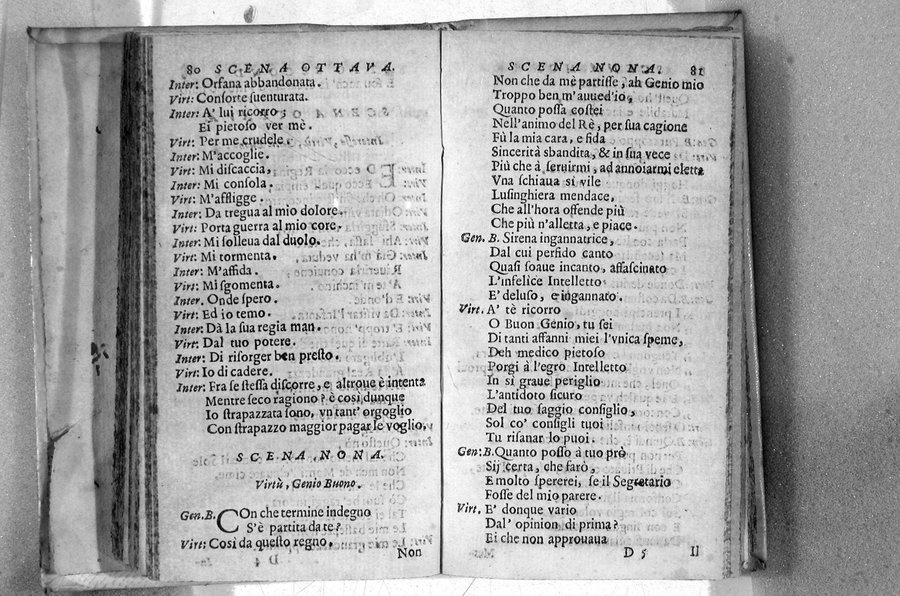 80 SCENA OTTAVA.
Inter: Orfana abbandonata.
Virt: Consorte suenturata.
Inter: A' lui ricorro;
Ei pietoso ver mè.
Virt: Per me crudele.
Inter: M'accoglie.
Virt: Mi discaccia,
Inter: Mi consola.
Virt: M'affligge.
Inter: Da tregua al mio dolore.
Virt: Porta guerra al mio core,
Inter: Mi solleua dal duolo.
Virt: Mi tormenta.
Inter: M'affida.
Virt: Mi sgomenta.
Inter. Onde spero.
Virt: Ed io temo.
Inter: Dà la sua regia man.
Virt: Dal tuo potere.
Inter: Di risorger ben presto.
Virt: Io di cadere.
Inter: Fra se stessa discorre, e altroue è intenta
Mentre seco ragiono? è così dunque
Io strapazzata sono, vn tant' orgoglio
Con strapazzo maggior pagar le voglio.
SCENA NONA.
Virtù, Genio Buono.
Gen.B. COn che termine indegno
S'è partita da te?
Virt: Cosi da questo regno.
Non
SCENA NONA. 81
Non che da mè partisse, ah Genio mio
Troppo ben m'auued'io,
Quanto possa costei
Nell'animo del Rè, per sua cagione
Fù la mia cara, e fida
Sincerità sbandita, & in sua vece
Più che à seruirmi, ad annoiarmi eletta
Vna schiaua si vile
Lusinghiera mendace,
Che all'hora offende più
Che più n'alletta, e piace.
Gen. B. Sirena ingannatrice,
Dal cui perfido canto
Quasi soaue incanto, affascinato
L'infelice Intelletto
E' deluso, e ingannato.
Virt. A' tè ricorro
O Buon Genio, tu sei
Di tanti affanni miei l'vnica speme,
Deh medico pietoso
Porgi à l'egro Intelletto
In si graue periglio
L'antidoto sicuro
Del tuo saggio consiglio,
Sol co' consigli tuoi
Tu risanar lo puoi.
Gen: B. Quanto posso à tuo prò
Sij certa, che farò,
E molto spererei, se il Segretario
Fosse del mio parere.
Virt. E' donque vario
Dal' opinion di prima?
Ei che non approuaua
D 5 Il